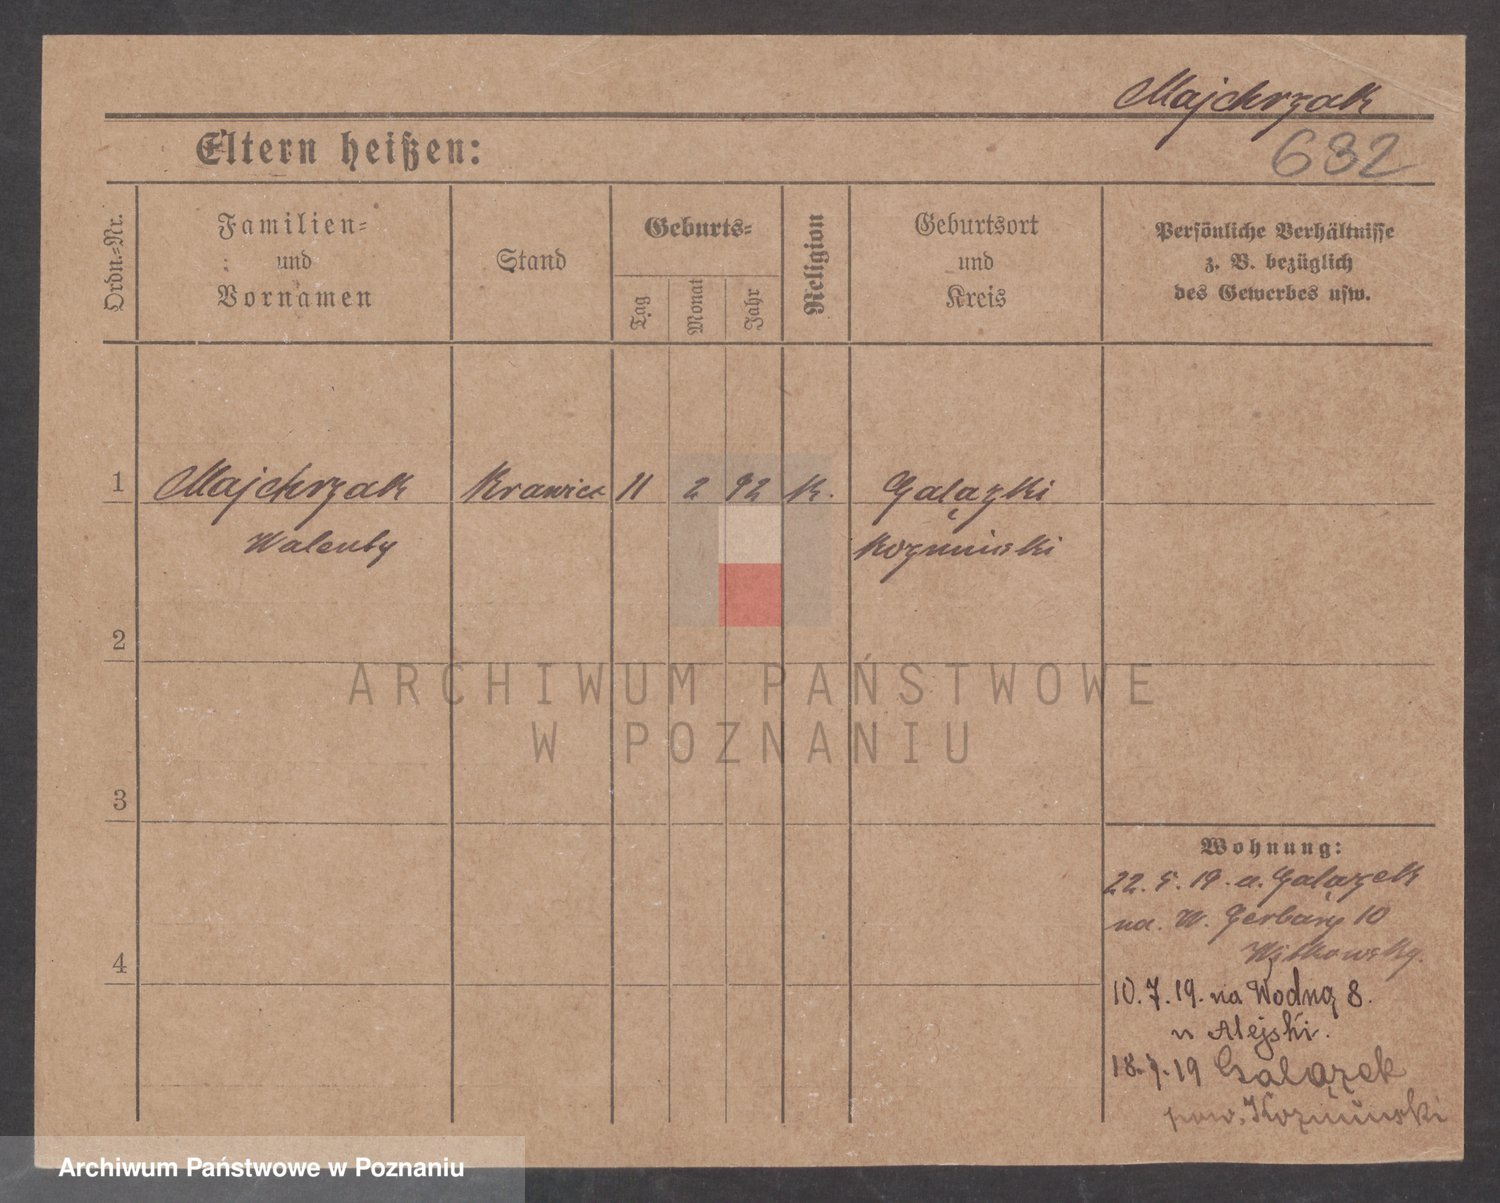 Majchrzak
632
Eltern heißen:
Ordn.-Nr.
Familien-
und
Vornamen
Stand
Geburts-
Tag
Monat
Jahr
Religion
Geburtsort
und
Kreis
Persönliche Verhältnisse
z. B. bezüglich
des Gewerbes usw.
1 Majchrzak Krawiec 11 2 92 k. Galązki
Walenty Kozminski
2
3
4
Wohnung:
22.5.19. a. Galązek
na. W. Gerbary 10
10.7.19. na Wodną 8.
u Alejski.
18.7.19 Galązek
pow. Kozminski
ARCHIWUM PAŃSTWOWE
W POZNANIU
Archiwum Państwowe w Poznaniu